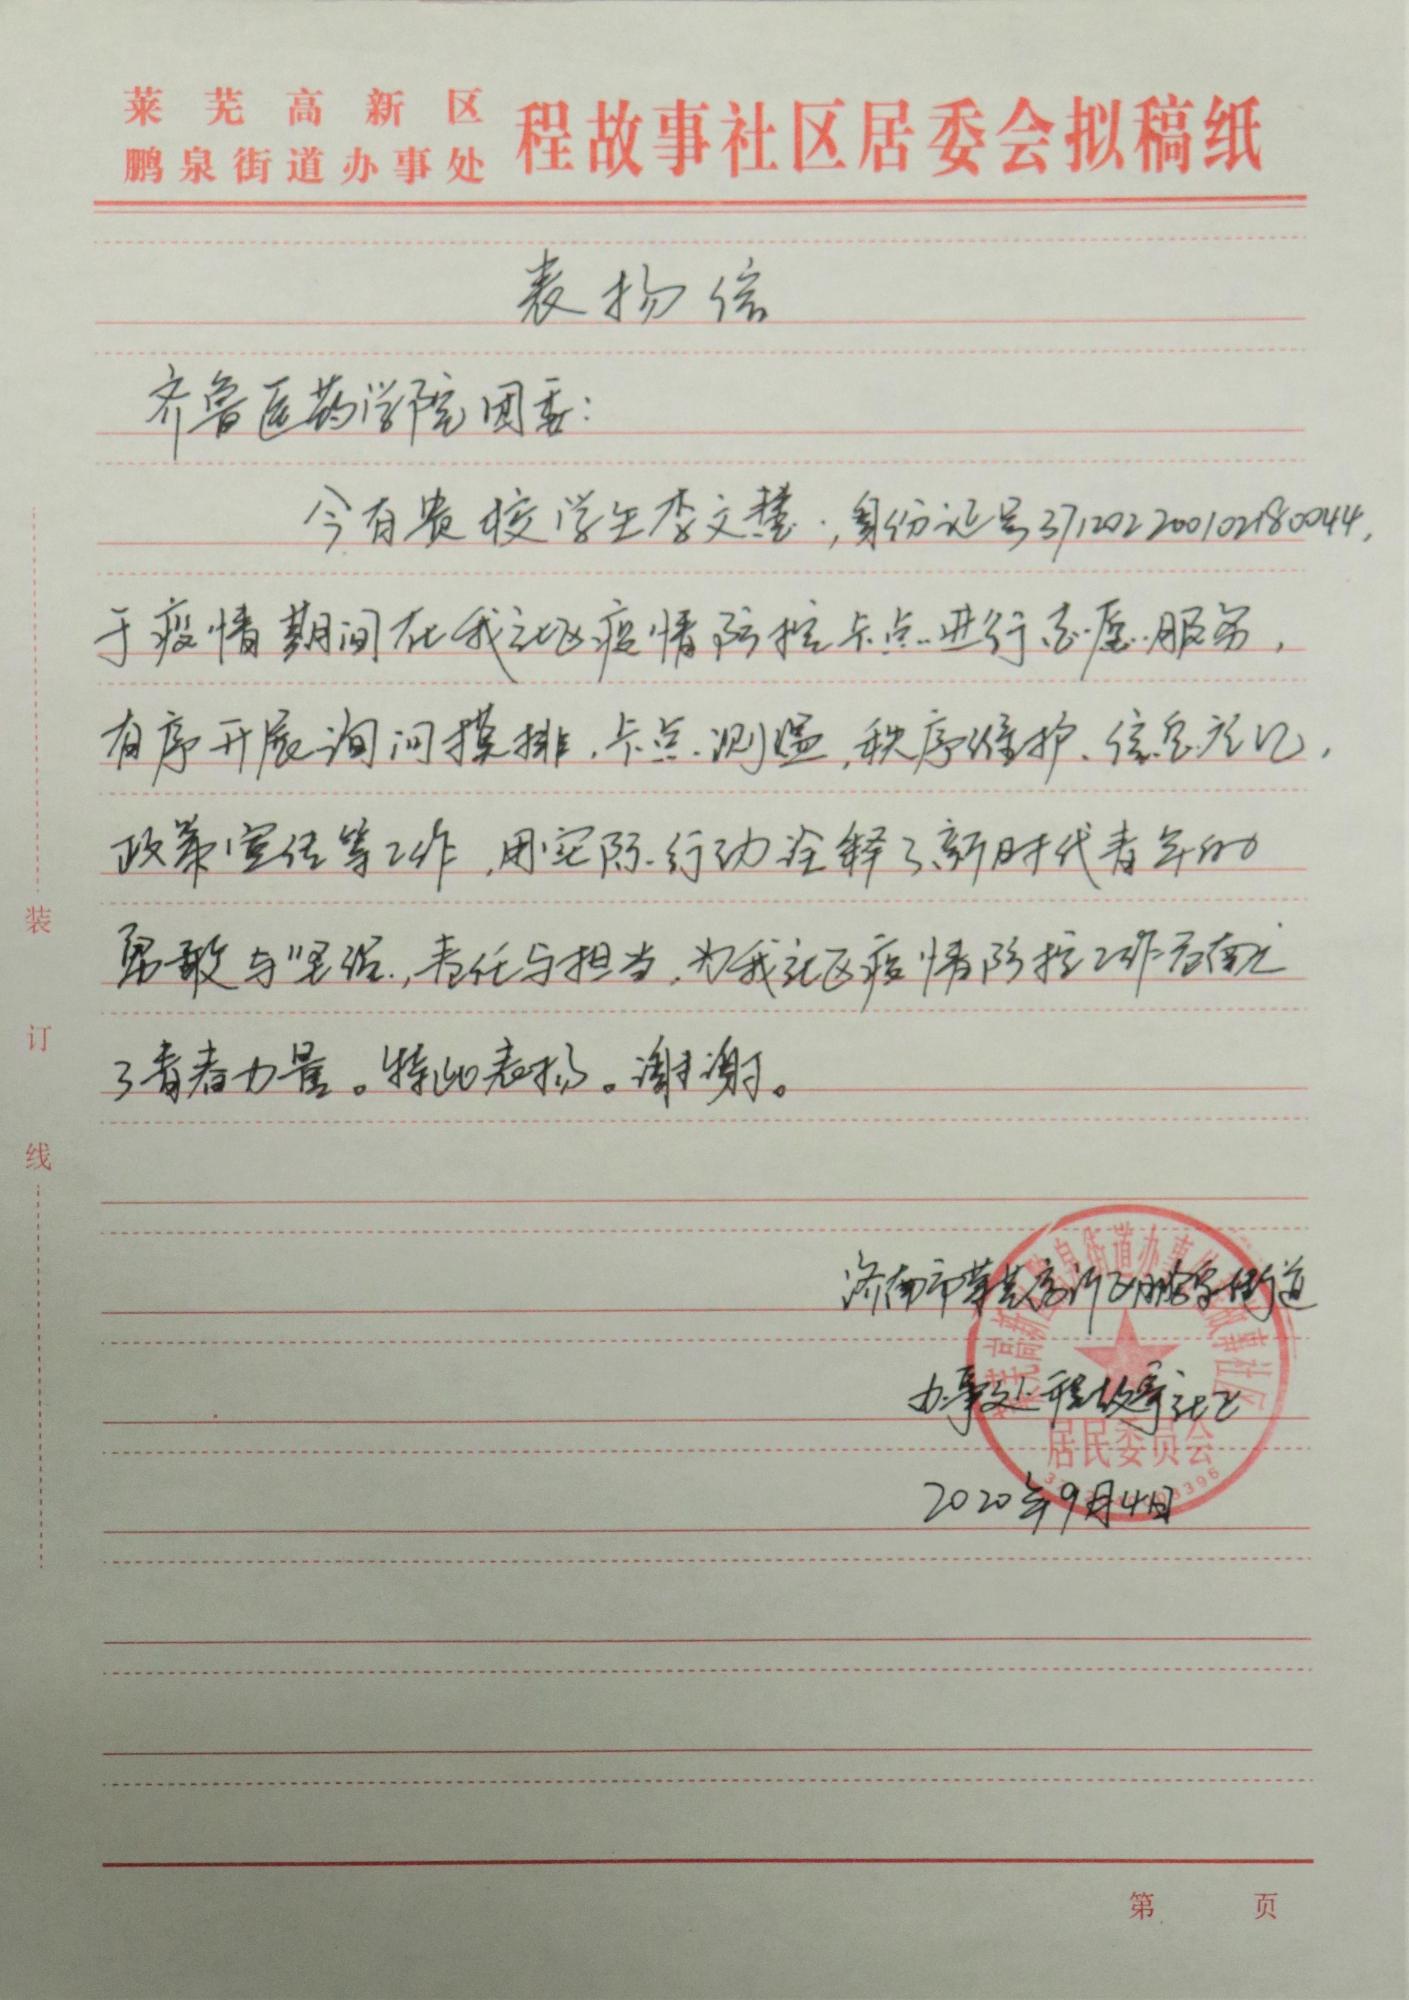 莱芜高新区
鹏泉街道办事处
程故事社区居委会拟稿纸
表扬信
齐鲁医药学院团委:
今有贵校学生李文慧,身份证号371202200102180044,
于疫情期间在我社区疫情防控卡点进行志愿服务,
有序开展询问摸排、卡点测温,秩序维护、信息登记,
政策宣传等工作,用实际行动诠释了新时代青年的
勇敢与坚强,责任与担当,为我社区疫情防控工作贡献
了青春力量。特此表扬。谢谢。
济南市莱芜高新区鹏泉街道
办事处程故事社区
2020年9月4日
居民委员会
装
订
线
第 页